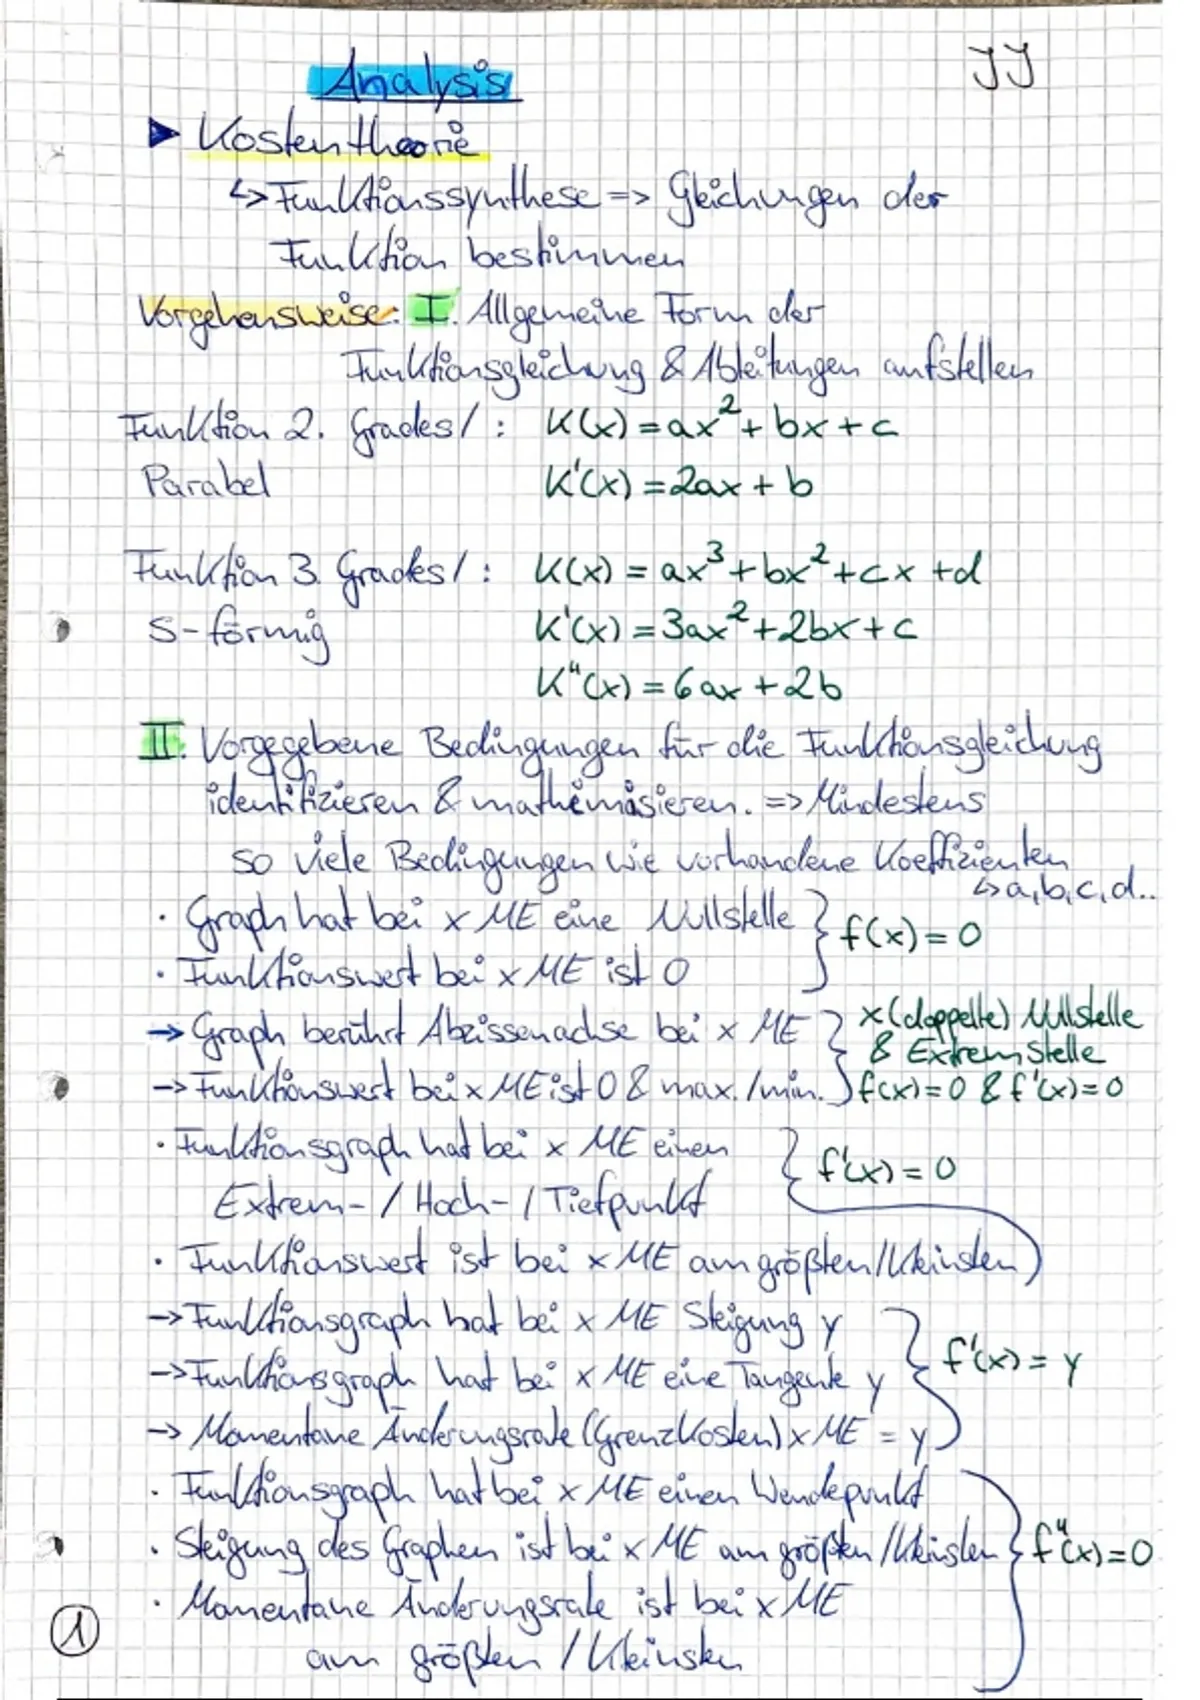 Analysis
JJ
Kostentheorie
↳ Funktionssynthese => Gleichungen der
Funktion bestimmen
Vorgehensweise: I. Allgemeine Form der
Funktionsgleichung & Ableitungen aufstellen
Funktion 2. Grades/ : K(x) = ax² + bx + c
Parabel K'(x) = 2ax + b
Funktion 3. Grades/ : K(x) = ax³ + bx² + cx + d
S-förmig K'(x) = 3ax² + 2bx + c
K"(x) = 6ax + 2b
II. Vorgegebene Bedingungen für die Funktionsgleichung
identifizieren & mathemasieren. => Mindestens
so viele Bedingungen wie vorhandene Koeffizienten
↳ a, b, c, d..
· Graph hat bei x ME eine Nullstelle } f(x) = 0
· Funktionswert bei x ME ist 0
→ Graph berührt Abzissenachse bei x ME } x (doppelte) Nullstelle
& Extremstelle
→ Funktionswert bei x ME ist 0 & max./min. f(x) = 0 & f'(x) = 0
· Funktionsgraph hat bei x ME einen } f'(x) = 0
Extrem- / Hoch- / Tiefpunkt
· Funktionswert ist bei x ME am größten/kleinsten
→ Funktionsgraph hat bei x ME Steigung y
→ Funktionsgraph hat bei x ME eine Tangente y } f'(x) = y
→ Momentane Änderungsrate (Grenzkosten) x ME = y
· Funktionsgraph hat bei x ME einen Wendepunkt
· Steigung des Graphen ist bei x ME am größten/kleinsten } f"(x) = 0
· Momentane Änderungsrate ist bei x ME
am größten / kleinsten
1